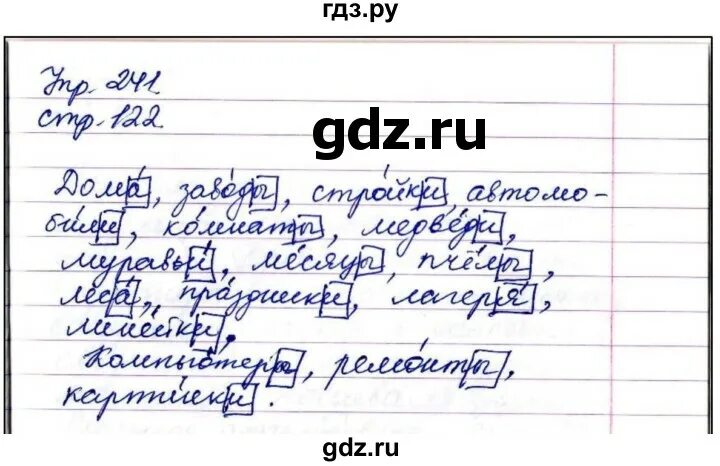 гдз.ру
Упр. 241.
стр. 122.
gdz.ru
Дома́, заво́ды, стро́йки, автомо-
би́ли, ко́мнаты, медве́ди,
муравьи́, ме́сяцы, пчёлы,
леса́, пра́здники, лагеря́,
лине́йки.
Компью́теры, ремо́нты,
карти́нки.
gdz.ru